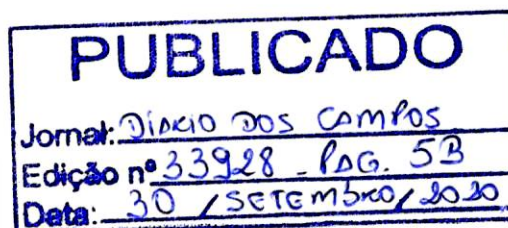 PUBLICADO
Jornal: DIÁRIO DOS CAMPOS
Edição nº 33928 - PAG. 5B
Data: 30 / SETEMBRO / 2020